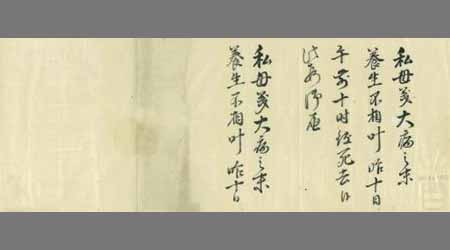 私母義大病之末
養生不相叶昨十日
午前十時経死去仕
此段御届
私母義大病之末
養生不相叶昨十日